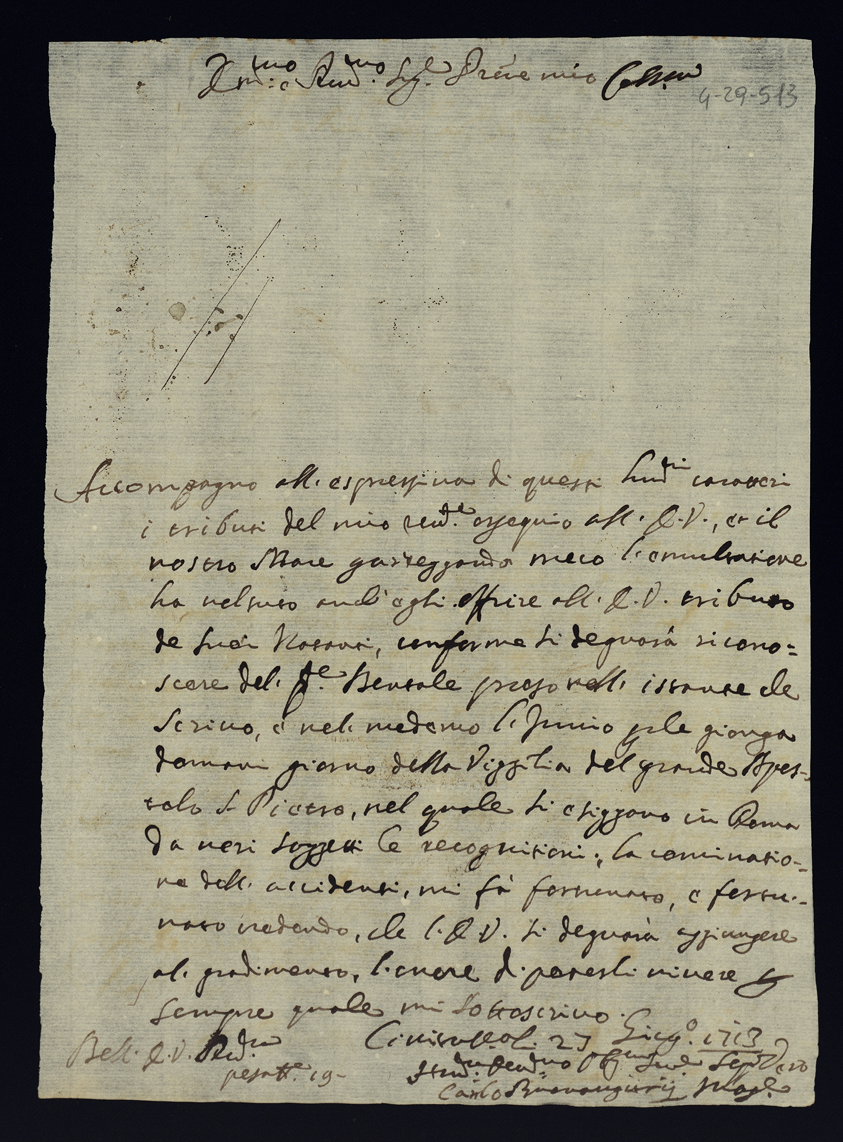 Ill.mo e Rev.mo Sig.r P.rone mio Coll.mo
4-29-513
Accompagno all'espressiva di questi hum.mi caratteri
i tributi del mio rev.te ossequio all. E.V., et il
nostro Mare gareggiando meco l'emulatione
ha voluto anch'egli offrire all. E.V. tributo
de suoi, conforme si degnarà ricono=
scere dal P.te presso nelli istante che
scrivo, e nel medemo l'invio p.che gionga
domani giorno della Viggilia del grande Apos-
tolo S. Pietro, nel quale si esiggono in Roma
da veri soggetti le recognitioni; la cominatio-
ne dell'accidenti, mi fà fortunato, e fortu-
nato vedendo, che l'E.V. si degnarà aggiungere
al gradimento, l'onore di potersli vivere
sempre quale mi sottoscrivo.
Civitavecch. 27 Giug.o 1713
Dell. E.V. Rev.ma
19-
Hum.mo Dev.mo Obl.mo Ser.
Carlo